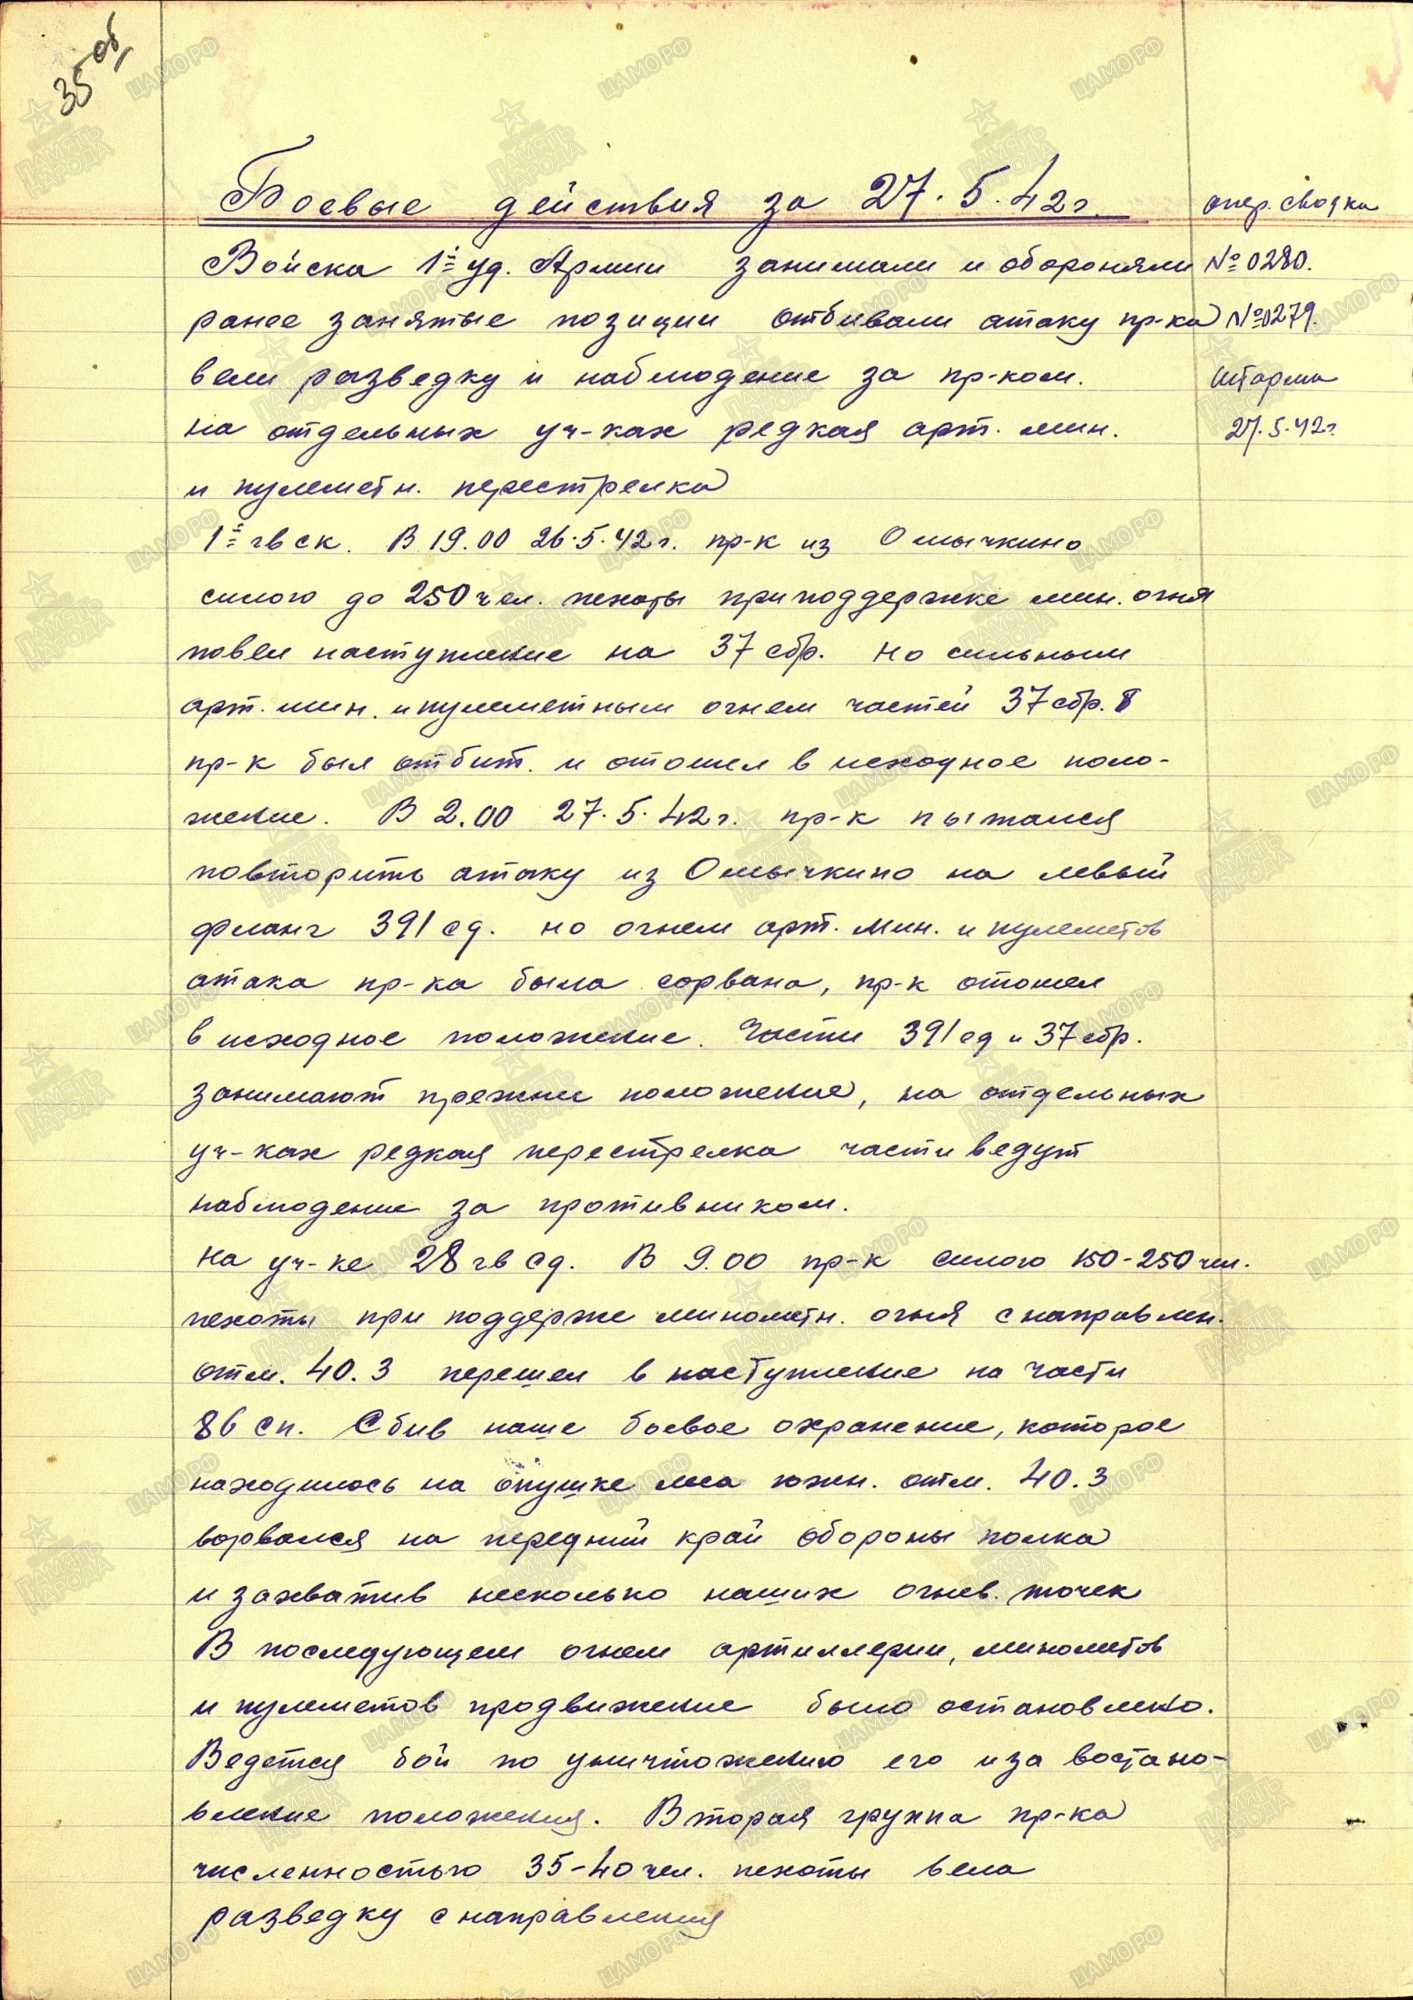 35 об
Боевые действия за 27.5.42г.
опер. сводка
Войска 1й уд. Армии занимали и обороняли
№0280.
ранее занятые позиции отбивали атаку пр-ка
№0279.
вели разведку и наблюдение за пр-ком.
Штарма
на отдельных уч-ках редкая арт. мин.
27.5.42г.
и пулеметн. перестрелка
1й гвск. В 19.00 26.5.42г. пр-к из Омычкино
силою до 250 чел. пехоты при поддержке мин. огня
повел наступление на 37 сбр. но сильным
арт. мин. и пулеметным огнем частей 37 сбр.
пр-к был отбит. и отошел в исходное поло-
жение. В 2.00 27.5.42г. пр-к пытался
повторить атаку из Омычкино на левый
фланг 391 сд. но огнем арт. мин. и пулеметов
атака пр-ка была сорвана, пр-к отошел
в исходное положение. Части 391 сд и 37 сбр.
занимают прежни положение, на отдельных
уч-ках редкая перестрелка части ведут
наблюдение за противником.
На уч-ке 28 гв сд. В 9.00 пр-к силою 150-250 чел.
пехоты при поддерже минометн. огня с направлен.
отм. 40.3 перешел в наступление на части
86 сп. Сбив наше боевое охранение, которое
находилось на опушке леса южн. отм. 40.3
ворвался на передний край обороны полка
и захватив несколько наших огнев. точек
В последующем огнем артиллерии, минометов
и пулеметов продвижение было остановлено.
Ведется бой по уничтожению его и за востано-
вление положения. Вторая группа пр-ка
численностью 35-40 чел. пехоты вела
разведку с направления
ЦАМО РФ
ПАМЯТЬ НАРОДА